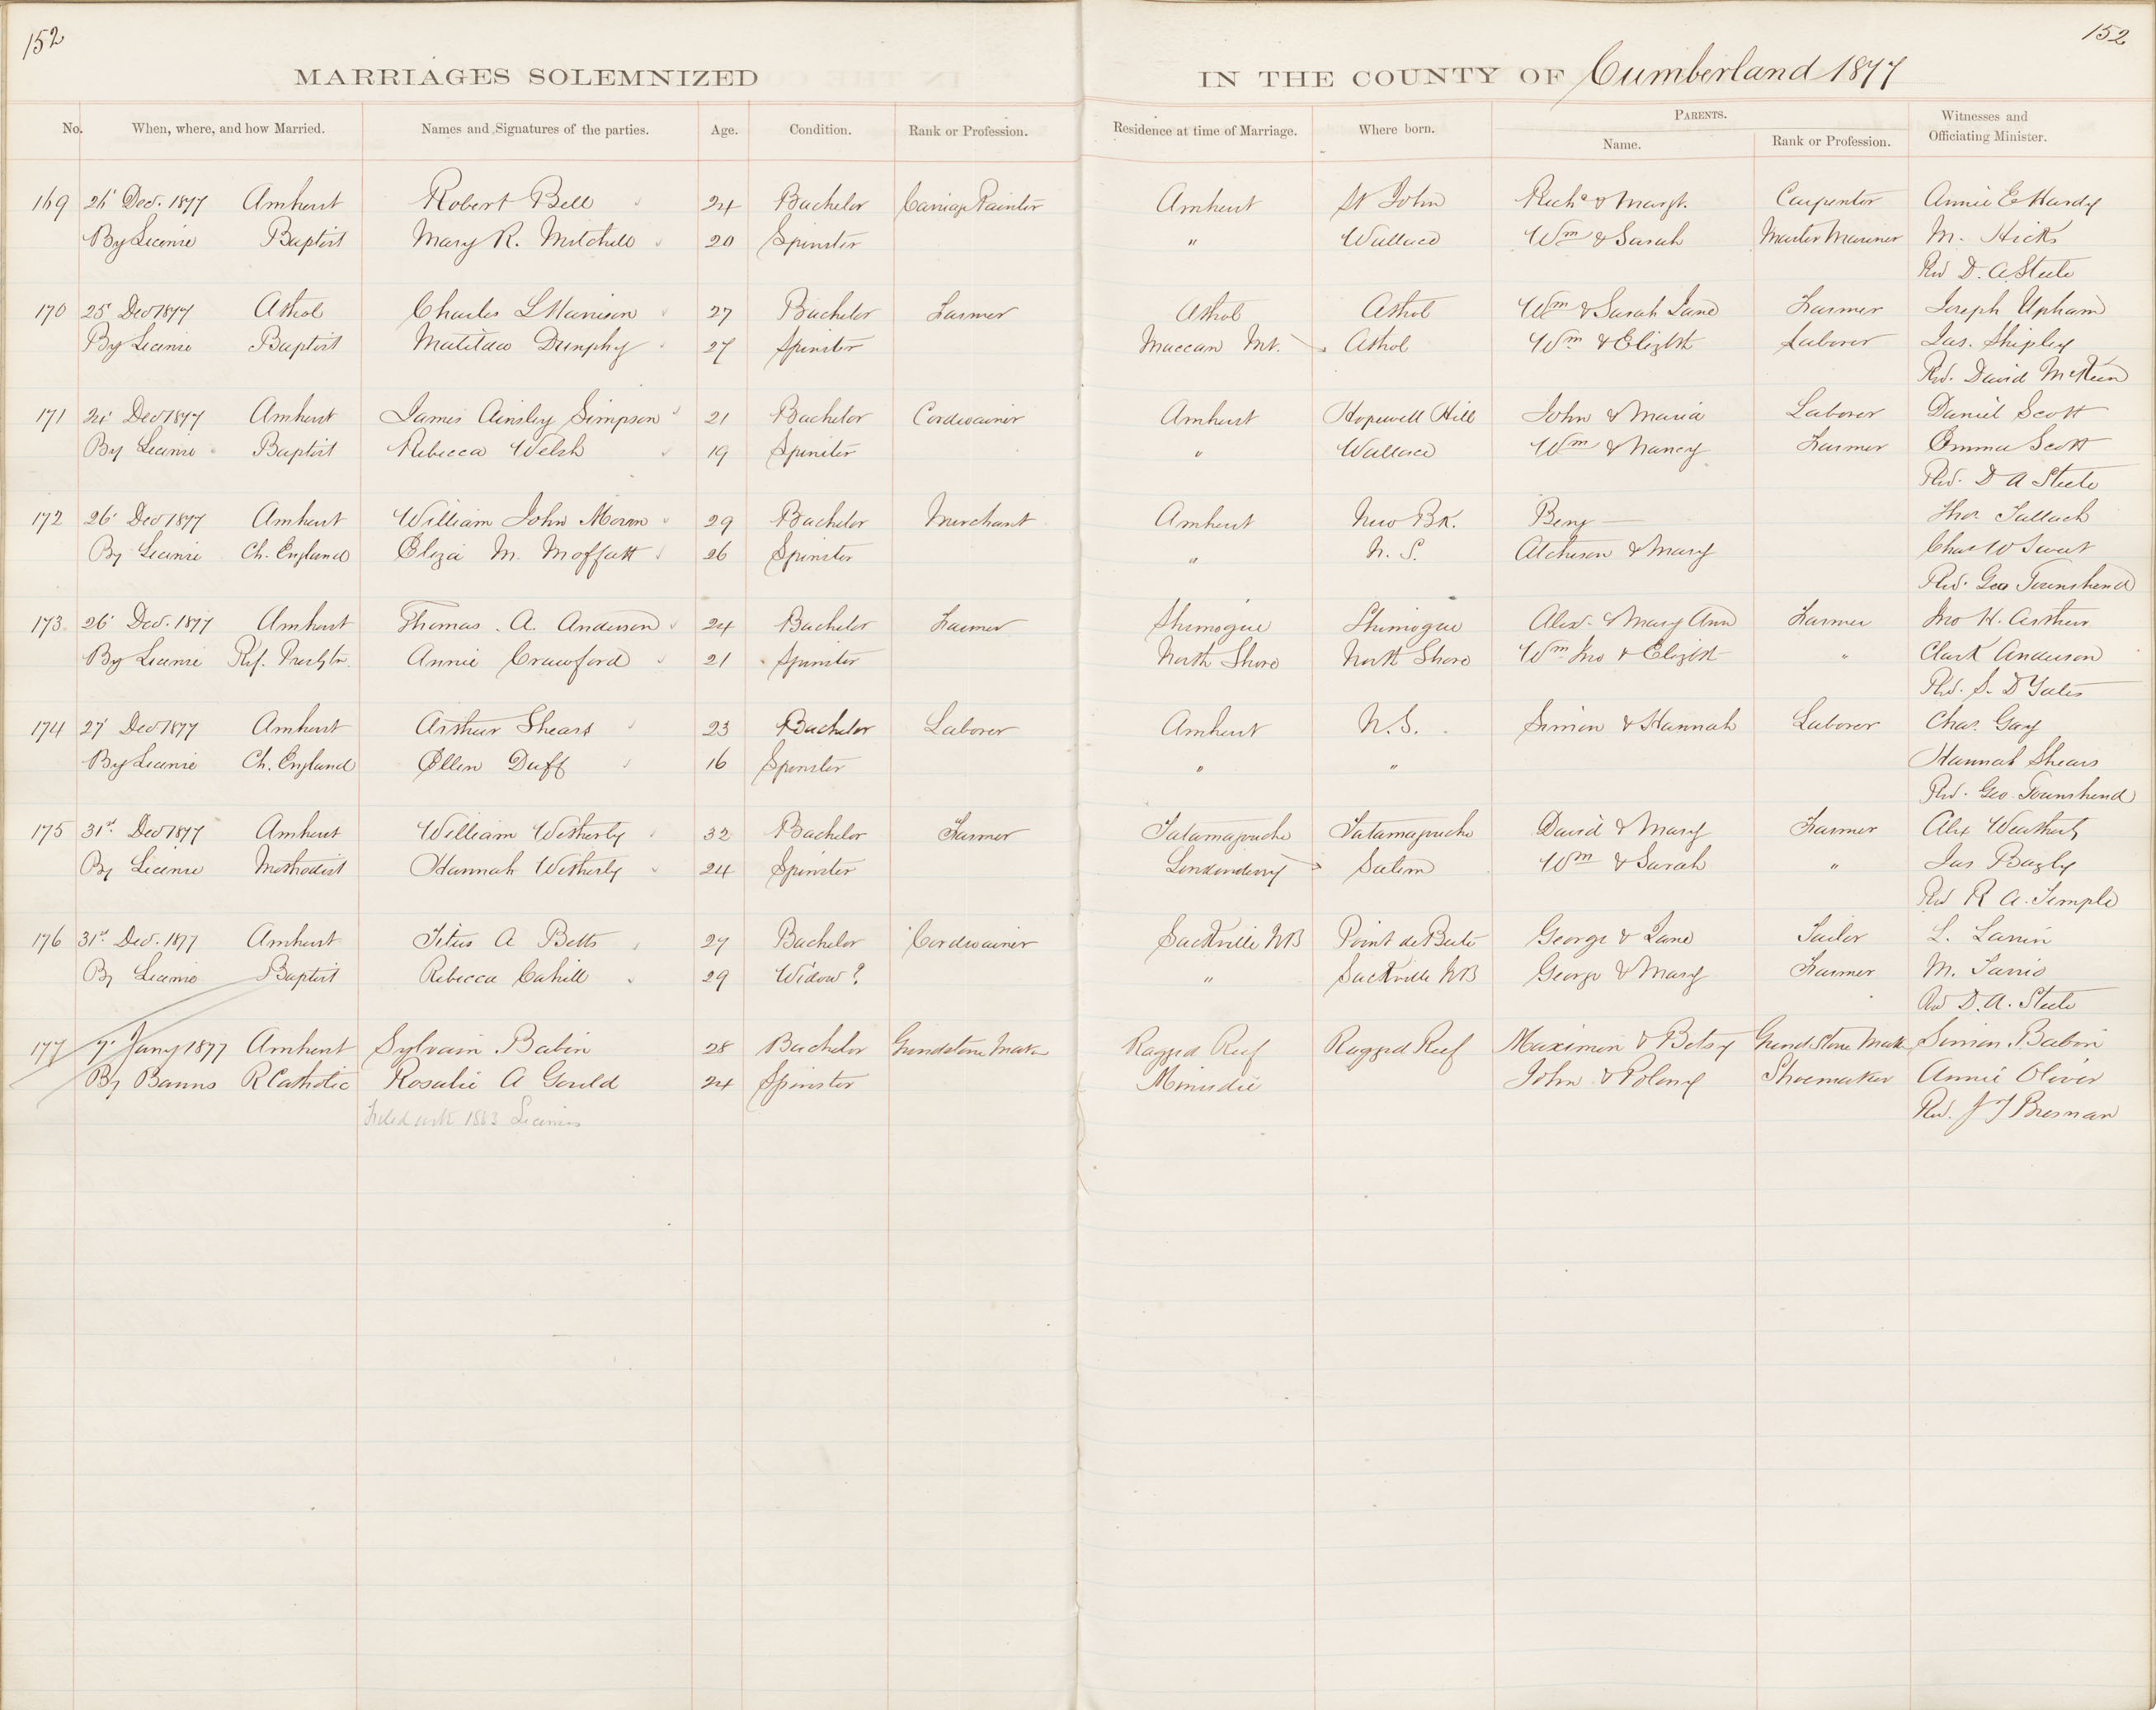 152
152
MARRIAGES SOLEMNIZED IN THE COUNTY OF Cumberland 1877
No. When, where, and how Married. Names and Signatures of the parties. Age. Condition. Rank or Profession. Residence at time of Marriage. Where born. PARENTS. Name. Rank or Profession. Witnesses and Officiating Minister.
169 26' Dec. 1877 Amherst Robert Bell 24 Bachelor Carriage Painter Amherst St John Richd & Margt. Carpenter Annie E Hardy
By License Baptist Mary R. Mitchell 20 Spinster " Wallace Wm & Sarah Master Mariner M. Hicks
Rev D. A Steele
170 25' Dec 1877 Athol Charles L Harrison 27 Bachelor Farmer Athol Athol Wm & Sarah Jane Farmer Joseph Upham
By License Baptist Matilda Dunphy 27 Spinster Maccan Mt. Athol Wm & Elizbth Laborer Jas. Shipley
Rev. David McKeen
171 24' Dec 1877 Amherst James Ainsley Simpson 21 Bachelor Cordwainer Amherst Hopewell Hill John & Maria Laborer Daniel Scott
By License Baptist Rebecca Welsh 19 Spinster " Wallace Wm & Nancy Farmer Emma Scott
Rev. D A Steele
172 26' Dec 1877 Amherst William John Moran 29 Bachelor Merchant Amherst New Bk. Benj Thos
By License Ch. England Eliza M. Moffatt 26 Spinster " N. S. Atcheson & Mary Chas W
Rev. Geo Townshend
173 26' Dec. 1877 Amherst Thomas. A. Anderson 24 Bachelor Farmer Shimogue Shimogue Alexr. & Mary Ann Farmer Jno H. Arthur
By License Ref. Presbytn. Annie Crawford 21 Spinster North Shore North Shore Wm Jno & Elizbth " Clark Anderson
Rev. S. D Yates
174 27' Dec 1877 Amherst Arthur Shears 23 Bachelor Laborer Amherst N.S. Simon & Hannah Laborer Chas. Gay
By License Ch. England Ellen Duff 16 Spinster " " Hannah Shears
Rev. Geo Townshend
175 31st Dec 1877 Amherst William Wetherby 32 Bachelor Farmer Tatamagouche Tatamagouche David & Mary Farmer Alex Weatherby
By License Methodist Hannah Wetherby 24 Spinster Londonderry Salem Wm & Sarah " Jas Bagly
Rev R A. Temple
176 31st Dec. 1877 Amherst Titus A Betts 27 Bachelor Cordwainer Sackville NB Point de Bute George & Jane Tailor L.
By License Baptist Rebecca Cahill 29 Widow? " Sackville NB George & Mary Farmer M.
Rev D. A. Steele
177 7' Jany 1877 Amherst Sylvain Babin 28 Bachelor Grindstone Maker Ragged Reef Ragged Reef Maximin & Betsy Grind Stone Maker Simon Babin
By Banns R Catholic Rosalie A Gould 24 Spinster Minudie John & Polony Shoemaker Annie Oliver
Filed with 1863 Licenses Rev. J T Bresnan